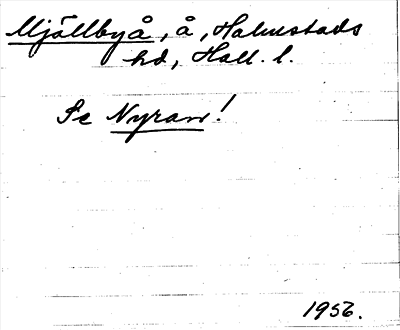 Mjällbyå, å, Halmstads
hd, Hall. l.
Se Nyran!
1956.